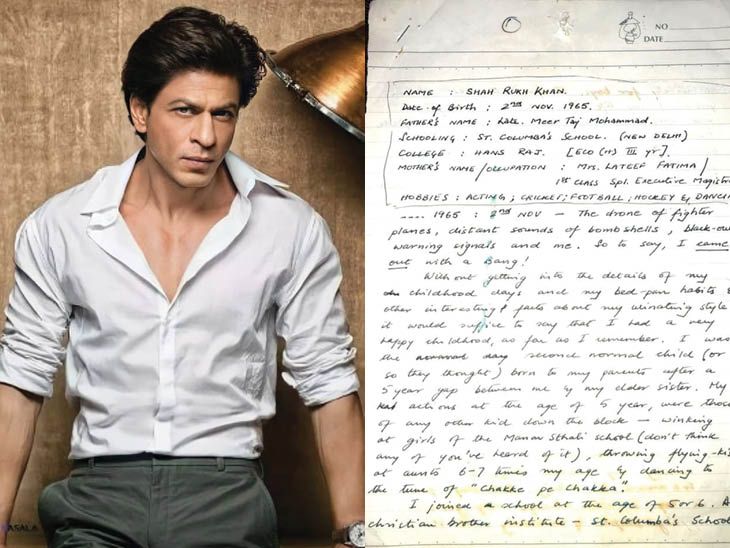 NO
DATE
NAME : SHAH RUKH KHAN.
Date of Birth : 2nd NOV. 1965.
FATHER'S NAME : Late. Meer Taj Mohammad.
SCHOOLING : ST. COLUMBA'S SCHOOL. (NEW DELHI)
COLLEGE : HANS RAJ. [ECO (H) III yr].
MOTHER'S NAME/OCCUPATION : MRS. LATEEF FATIMA/
1st CLASS Spl. Executive Magistr
HOBBIES : ACTING; CRICKET; FOOTBALL; HOCKEY & DANCIN
---- 1965 : 2nd NOV — The drone of fighter
planes, distant sounds of bombshells, black-out
warning signals and me. So to say, I came
out with a Bang!
Without getting into the details of my
childhood days and my bed-pan habits &
other interesting facts about my urinating style
it would suffice to say that I had a very
happy childhood, as far as I remember. I was
the second normal child (or
so they thought) born to my parents after a
5 year gap between me & my elder sister. My
actions at the age of 5 year, were those
of any other kid down the block — winking
at girls of the Manav Sthali school (don't think
any of you've heard of it), throwing flying-kis
at aunts 6-7 times my age & dancing to
the tune of "Chakke pe Chakka".
I joined a school at the age of 5 or 6. A
christian brother institute — St. Columba's School
ASALA